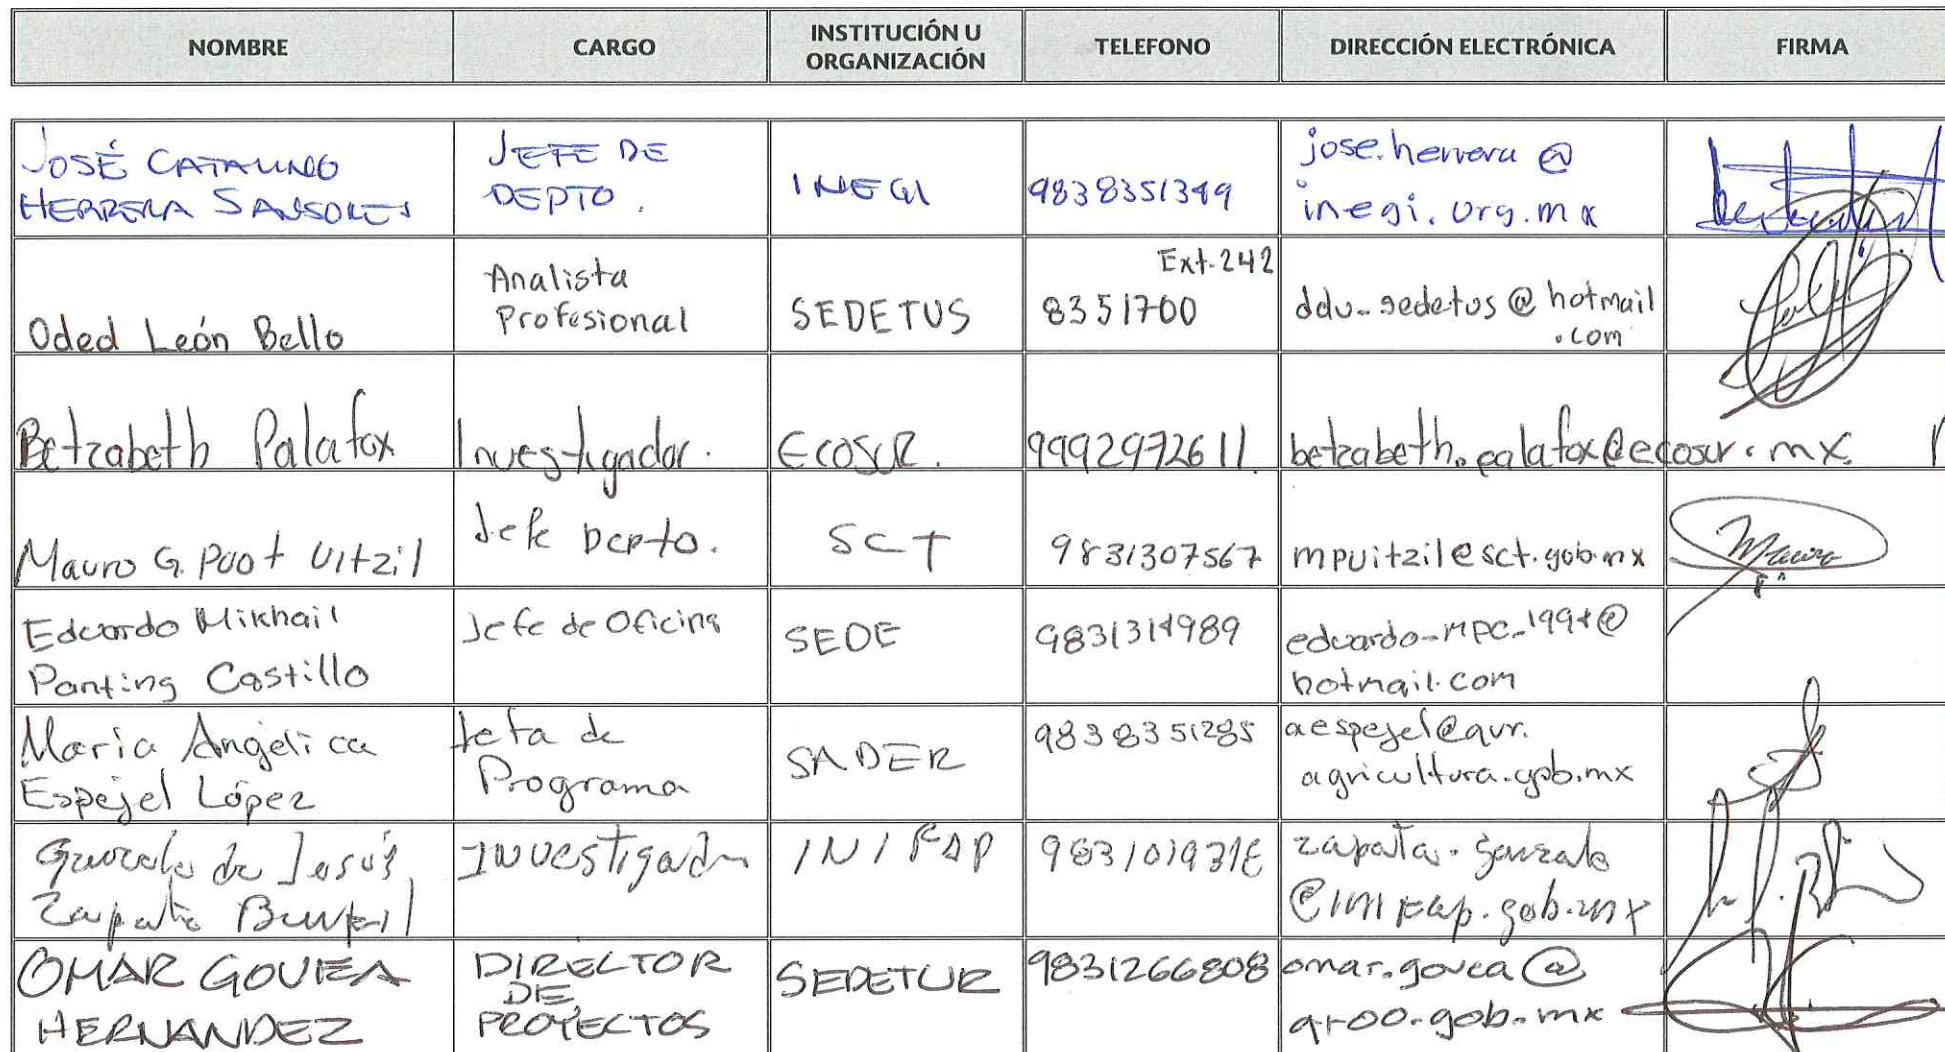 NOMBRE
CARGO
INSTITUCIÓN U
ORGANIZACIÓN
TELEFONO
DIRECCIÓN ELECTRÓNICA
FIRMA
JOSÉ CATALINO
HERRERA SANSORES
JEFE DE
DEPTO.
INEGI
9838351349
jose.herrera @
inegi.org.mx
Oded León Bello
Analista
Profesional
SEDETUS
Ext. 242
8351700
ddu-sedetus @ hotmail
.com
Betzabeth Palafox
Investigador.
Ecosur.
9992972611
betzabeth.palafox@ecosur.mx
Mauro G. Poot Uitzil
Jefe Depto.
SCT
9831307567
mpuitzil@sct.gob.mx
Mauro
Eduardo Mikhail
Panting Castillo
Jefe de Oficina
SEDE
hotmail.com
María Angelica
Espejel López
Jefa de
Programa
SADER
9838351285
aespejel@qur.
agricultura.gob.mx
Gonzalo de Jesús
Zapata
Investigador
INIFAP
zapata.gonzalo
@inifap.gob.mx
OMAR GOUEA
HERNANDEZ
DIRECTOR
DE
PROYECTOS
SEDETUR
9831266808
omar.gouea @
qroo.gob.mx